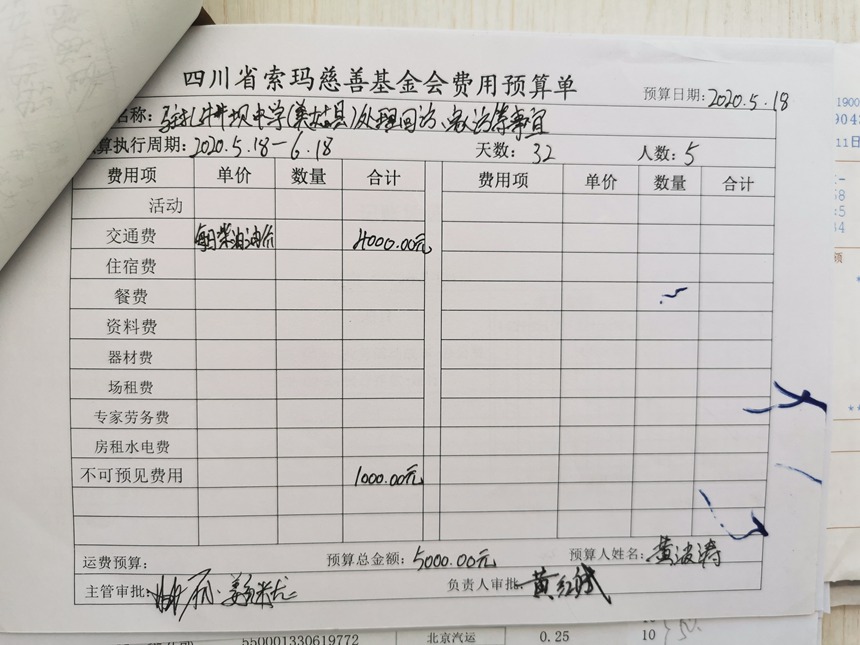 四川省索玛慈善基金会费用预算单
预算日期:2020.5.18
名称: 中学(美姑县)处理回访、家访等事宜
算执行周期:2020.5.18-6.18 天数:32 人数:5
费用项 单价 数量 合计 费用项 单价 数量 合计
活动
交通费 每日柴油油价 4000.00元
住宿费
餐费
资料费
器材费
场租费
专家劳务费
房租水电费
不可预见费用 1000.00元
运费预算: 预算总金额:5000.00元 预算人姓名:黄波涛
主管审批: 负责人审批:黄红斌
550001330619772 北京汽运 0.25 10
1900
904
11日